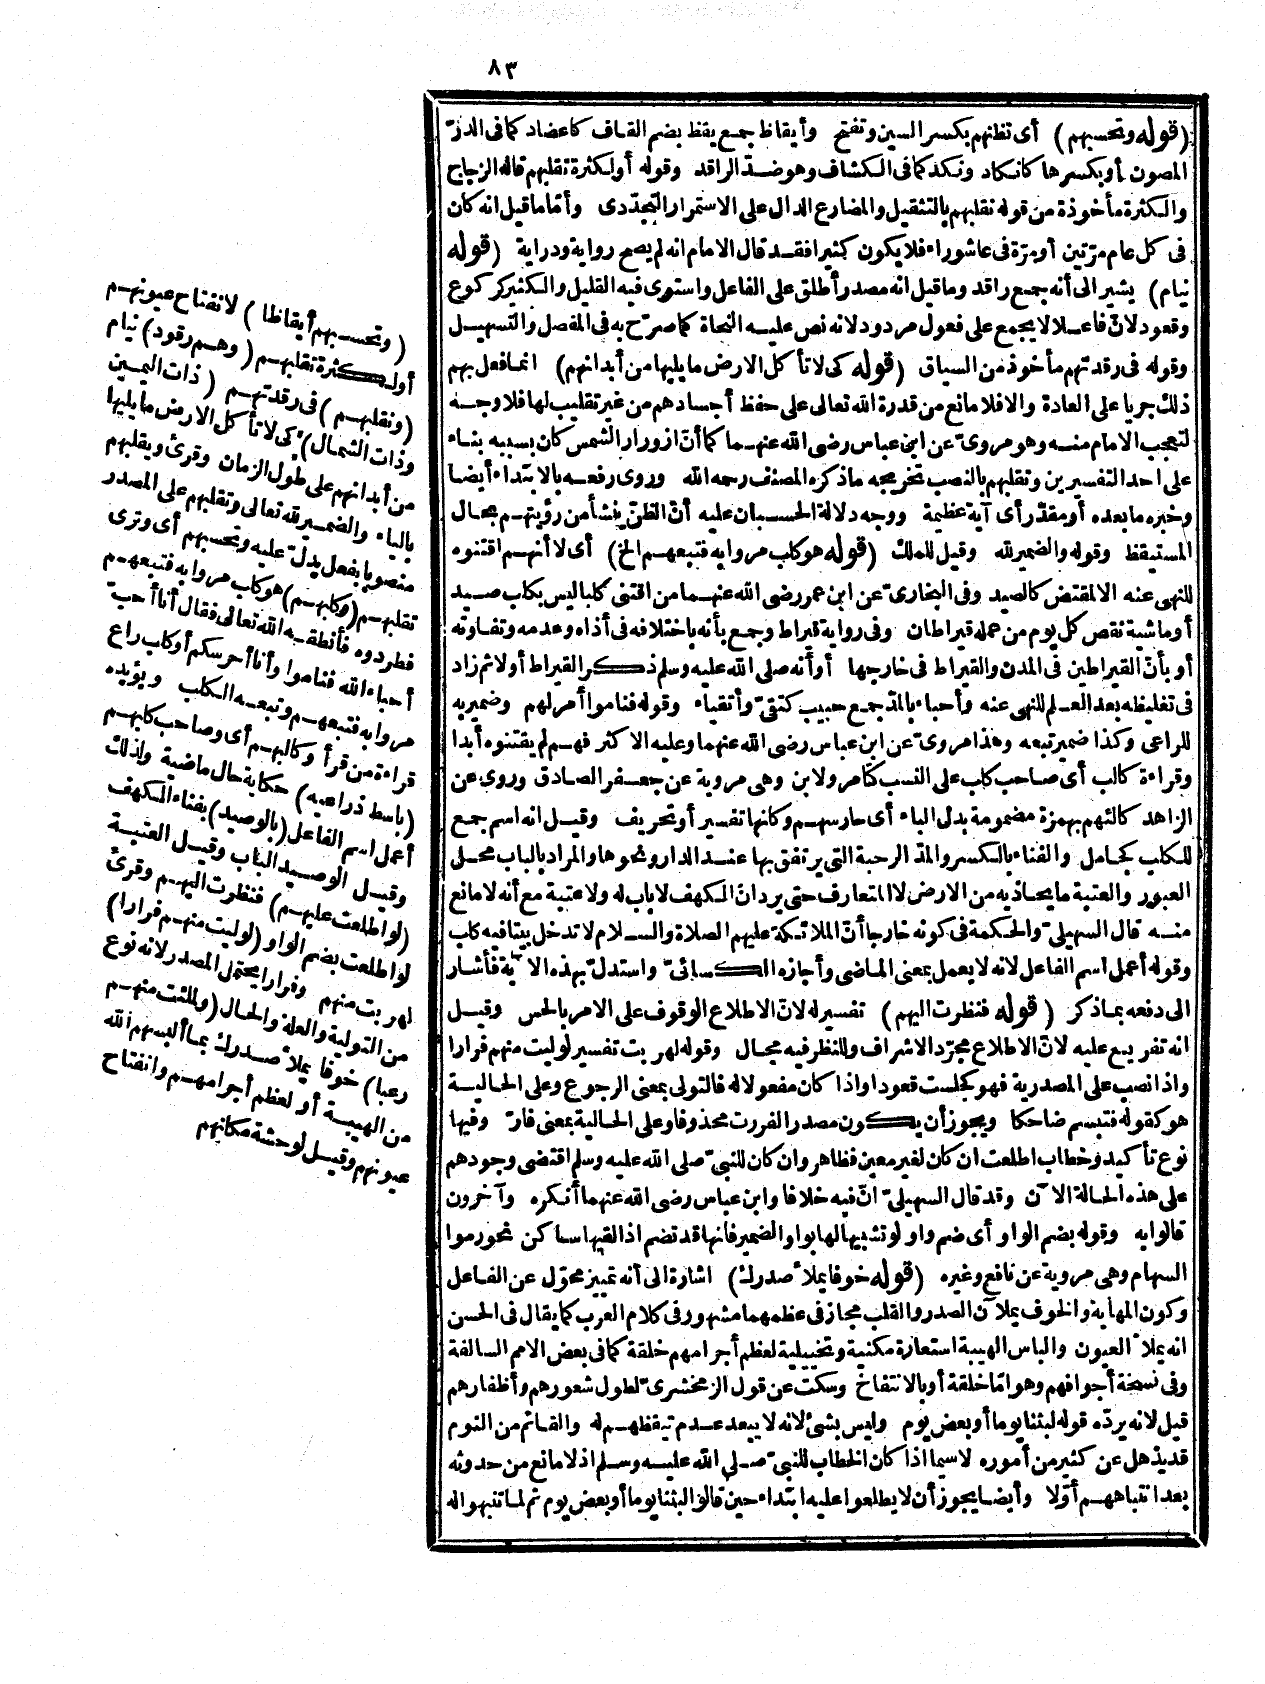 ٨٣
(قوله وتحسبهم) أى تظنهم بكسر السين وتفتح وأيقاظ جمع يقظ بضم القاف كاعضاد كما فى الدرّ
المصون أو بكسرها كأنكاد ونكد كما فى الكشاف وهو ضدّ الراقد وقوله أو لكثرة تقلبهم قاله الزجاج
والكثرة مأخوذة من قوله نقلبهم بالتثقيل والمضارع الدال على الاستمرار التجدّدى وأمّا ما قيل انه كان
فى كل عام مرّتين أو مرّة فى عاشوراء فلا يكون كثيرا فقد قال الامام انه لم يصح رواية ودراية (قوله
نيام) يشير الى أنه جمع راقد وما قيل انه مصدر أطلق على الفاعل واستوى فيه القليل والكثير كركوع
وقعود لانّ فاعلا لا يجمع على فعول مردود لانه نص عليه النحاة كما صرّح به فى المفصل والتسهيل
وقوله فى رقدتهم مأخوذ من السياق (قوله كى لا تأكل الارض ما يليها من أبدانهم) انما فعل بهم
ذلك جريا على العادة والا فلا مانع من قدرة الله تعالى على حفظ أجسادهم من غير تقليب لها فلا وجه
لتعجب الامام منه وهو مروىّ عن ابن عباس رضى الله عنهما كما أنّ ازورار الشمس كان بسببه بناء
على احد التفسيرين وتقلبهم بالنصب تخريجه ما ذكره المصنف رحمه الله وروى رفعه بالابتداء أيضا
وخبره ما بعده أو مقدّر أى آية عظيمة ووجه دلالة الحسبان عليه أنّ الظنّ ينشأ من رؤيتهم بحال
المستيقظ وقوله والضمير لله وقيل للملك (قوله هو كلب مروا به فتبعهم الخ) أى لا أنهم اقتنوه
للنهى عنه الا لمقتض كالصيد وفى البخارىّ عن ابن عمر رضى الله عنهما من اقتنى كلبا ليس بكلب صيد
أو ماشية نقص كل يوم من عمله قيراطان وفى رواية قيراط وجمع بأنه باختلافه فى أذاه وعدمه وتفاوته
أو بأنّ القيراطين فى المدن والقيراط فى خارجها أو أنه صلى الله عليه وسلم ذكر القيراط أولا ثم زاد
فى تغليظه بعد العلم للنهى عنه وأحباء بالمدّ جمع حبيب كتقىّ وأتقياء وقوله فناموا أمر لهم وضمير به
للراعى وكذا ضمير تبعه وهذا مروىّ عن ابن عباس رضى الله عنهما وعليه الاكثر فهم لم يقتنوه أبدا
وقراءة كالب أى صاحب كلب على النسب كتامر ولابن وهى مروية عن جعفر الصادق وروى عن
الزاهد كالئهم بهمزة مضمومة بدل الباء أى حارسهم وكانها تفسير أو تحريف وقيل انه اسم جمع
للكلب كجامل والفناء بالكسر والمدّ الرحبة التى يرتفق بها عند الدار ونحوها والمراد بالباب محل
العبور والعتبة ما يحاذيه من الارض لا المتعارف حتى يرد انّ الكهف لا باب له ولا عتبة مع أنه لا مانع
منه قال السهيلىّ والحكمة فى كونه خارجا أنّ الملائكة عليهم الصلاة والسلام لا تدخل بيتا فيه كلب
وقوله أعمل اسم الفاعل لانه لا يعمل بمعنى الماضى وأجازه الكسائىّ واستدلّ بهذه الآية فأشار
الى دفعه بما ذكر (قوله فنظرت اليهم) تفسير له لانّ الاطلاع الوقوف على الامر بالحس وقيل
انه تفريع عليه لانّ الاطلاع مجرّد الاشراف وللنظر فيه مجال وقوله لهربت تفسير لوليت منهم فرارا
واذا نصب على المصدرية فهو كجلست قعودا واذا كان مفعولا له فالتولى بمعنى الرجوع وعلى الحالية
هو كقوله فتبسم ضاحكا ويجوز أن يكون مصدرا لفررت محذوفا وعلى الحالية بمعنى فارّ وفيها
نوع تأكيد وخطاب اطلعت ان كان لغير معين فظاهر وان كان للنبىّ صلى الله عليه وسلم اقتضى وجودهم
على هذه الحالة الآن وقد قال السهيلىّ انّ فيه خلافا وابن عباس رضى الله عنهما أنكره وآخرون
قالوا به وقوله بضم الواو أى ضم واو لو تشبيها لها بواو الضمير فانها قد تضم اذا لقيها ساكن نحو رموا
السهام وهى مروية عن نافع وغيره (قوله خوفا يملأ صدرك) اشارة الى أنه تمييز محوّل عن الفاعل
وكون المهابة والخوف يملآن الصدر والقلب مجاز فى عظمهما مشهور فى كلام العرب كما يقال فى الحسن
انه يملأ العيون والباس الهيبة استعارة مكنية وتخييلية لعظم أجرامهم خلقة كما فى بعض الامم السالفة
وفى نسخة أجوافهم وهو امّا خلقة أو بالانتفاخ وسكت عن قول الزمخشرىّ لطول شعورهم وأظفارهم
قيل لانه يردّه قوله لبثنا يوما أو بعض يوم وليس بشئ لانه لا يبعد عدم تيقظهم له والقائم من النوم
قد يذهل عن كثير من أموره لا سيما اذا كان الخطاب للنبىّ صلى الله عليه وسلم اذ لا مانع من حدوثه
بعد انتباههم أوّلا وأيضا يجوز أن لا يطلعوا عليه ابتداء حين قالوا لبثنا يوما أو بعض يوم ثم لما تنبهوا له
(وتحسبهم أيقاظا) لانفتاح عيونهم
أو لكثرة تقلبهم (وهم رقود) نيام
(ونقلبهم) فى رقدتهم (ذات اليمين
وذات الشمال) كى لا تأكل الارض ما يليها
من أبدانهم على طول الزمان وقرئ ويقلبهم
بالياء والضمير لله تعالى وتقلبهم على المصدر
منصوبا بفعل يدلّ عليه وتحسبهم أى وترى
تقلبهم (وكلبهم) هو كلب مروا به فتبعهم
فطردوه فأنطقه الله تعالى فقال أنا أحبّ
أحباء الله فناموا وأنا أحرسكم أو كلب راع
مروا به فتبعهم وتبعه الكلب ويؤيده
قراءة من قرأ وكالبهم أى وصاحب كلبهم
(باسط ذراعيه) حكاية حال ماضية ولذلك
أعمل اسم الفاعل (بالوصيد) بفناء الكهف
وقيل الوصيد الباب وقيل العتبة
(لو اطلعت عليهم) فنظرت اليهم وقرئ
لو اطلعت بضم الواو (لوليت منهم فرارا)
لهربت منهم وفرارا يحتمل المصدر لانه نوع
من التولية والعلة والحال (ولملئت منهم
رعبا) خوفا يملأ صدرك بما ألبسهم الله
من الهيبة أو لعظم أجرامهم وانفتاح
عيونهم وقيل لوحشة مكانهم